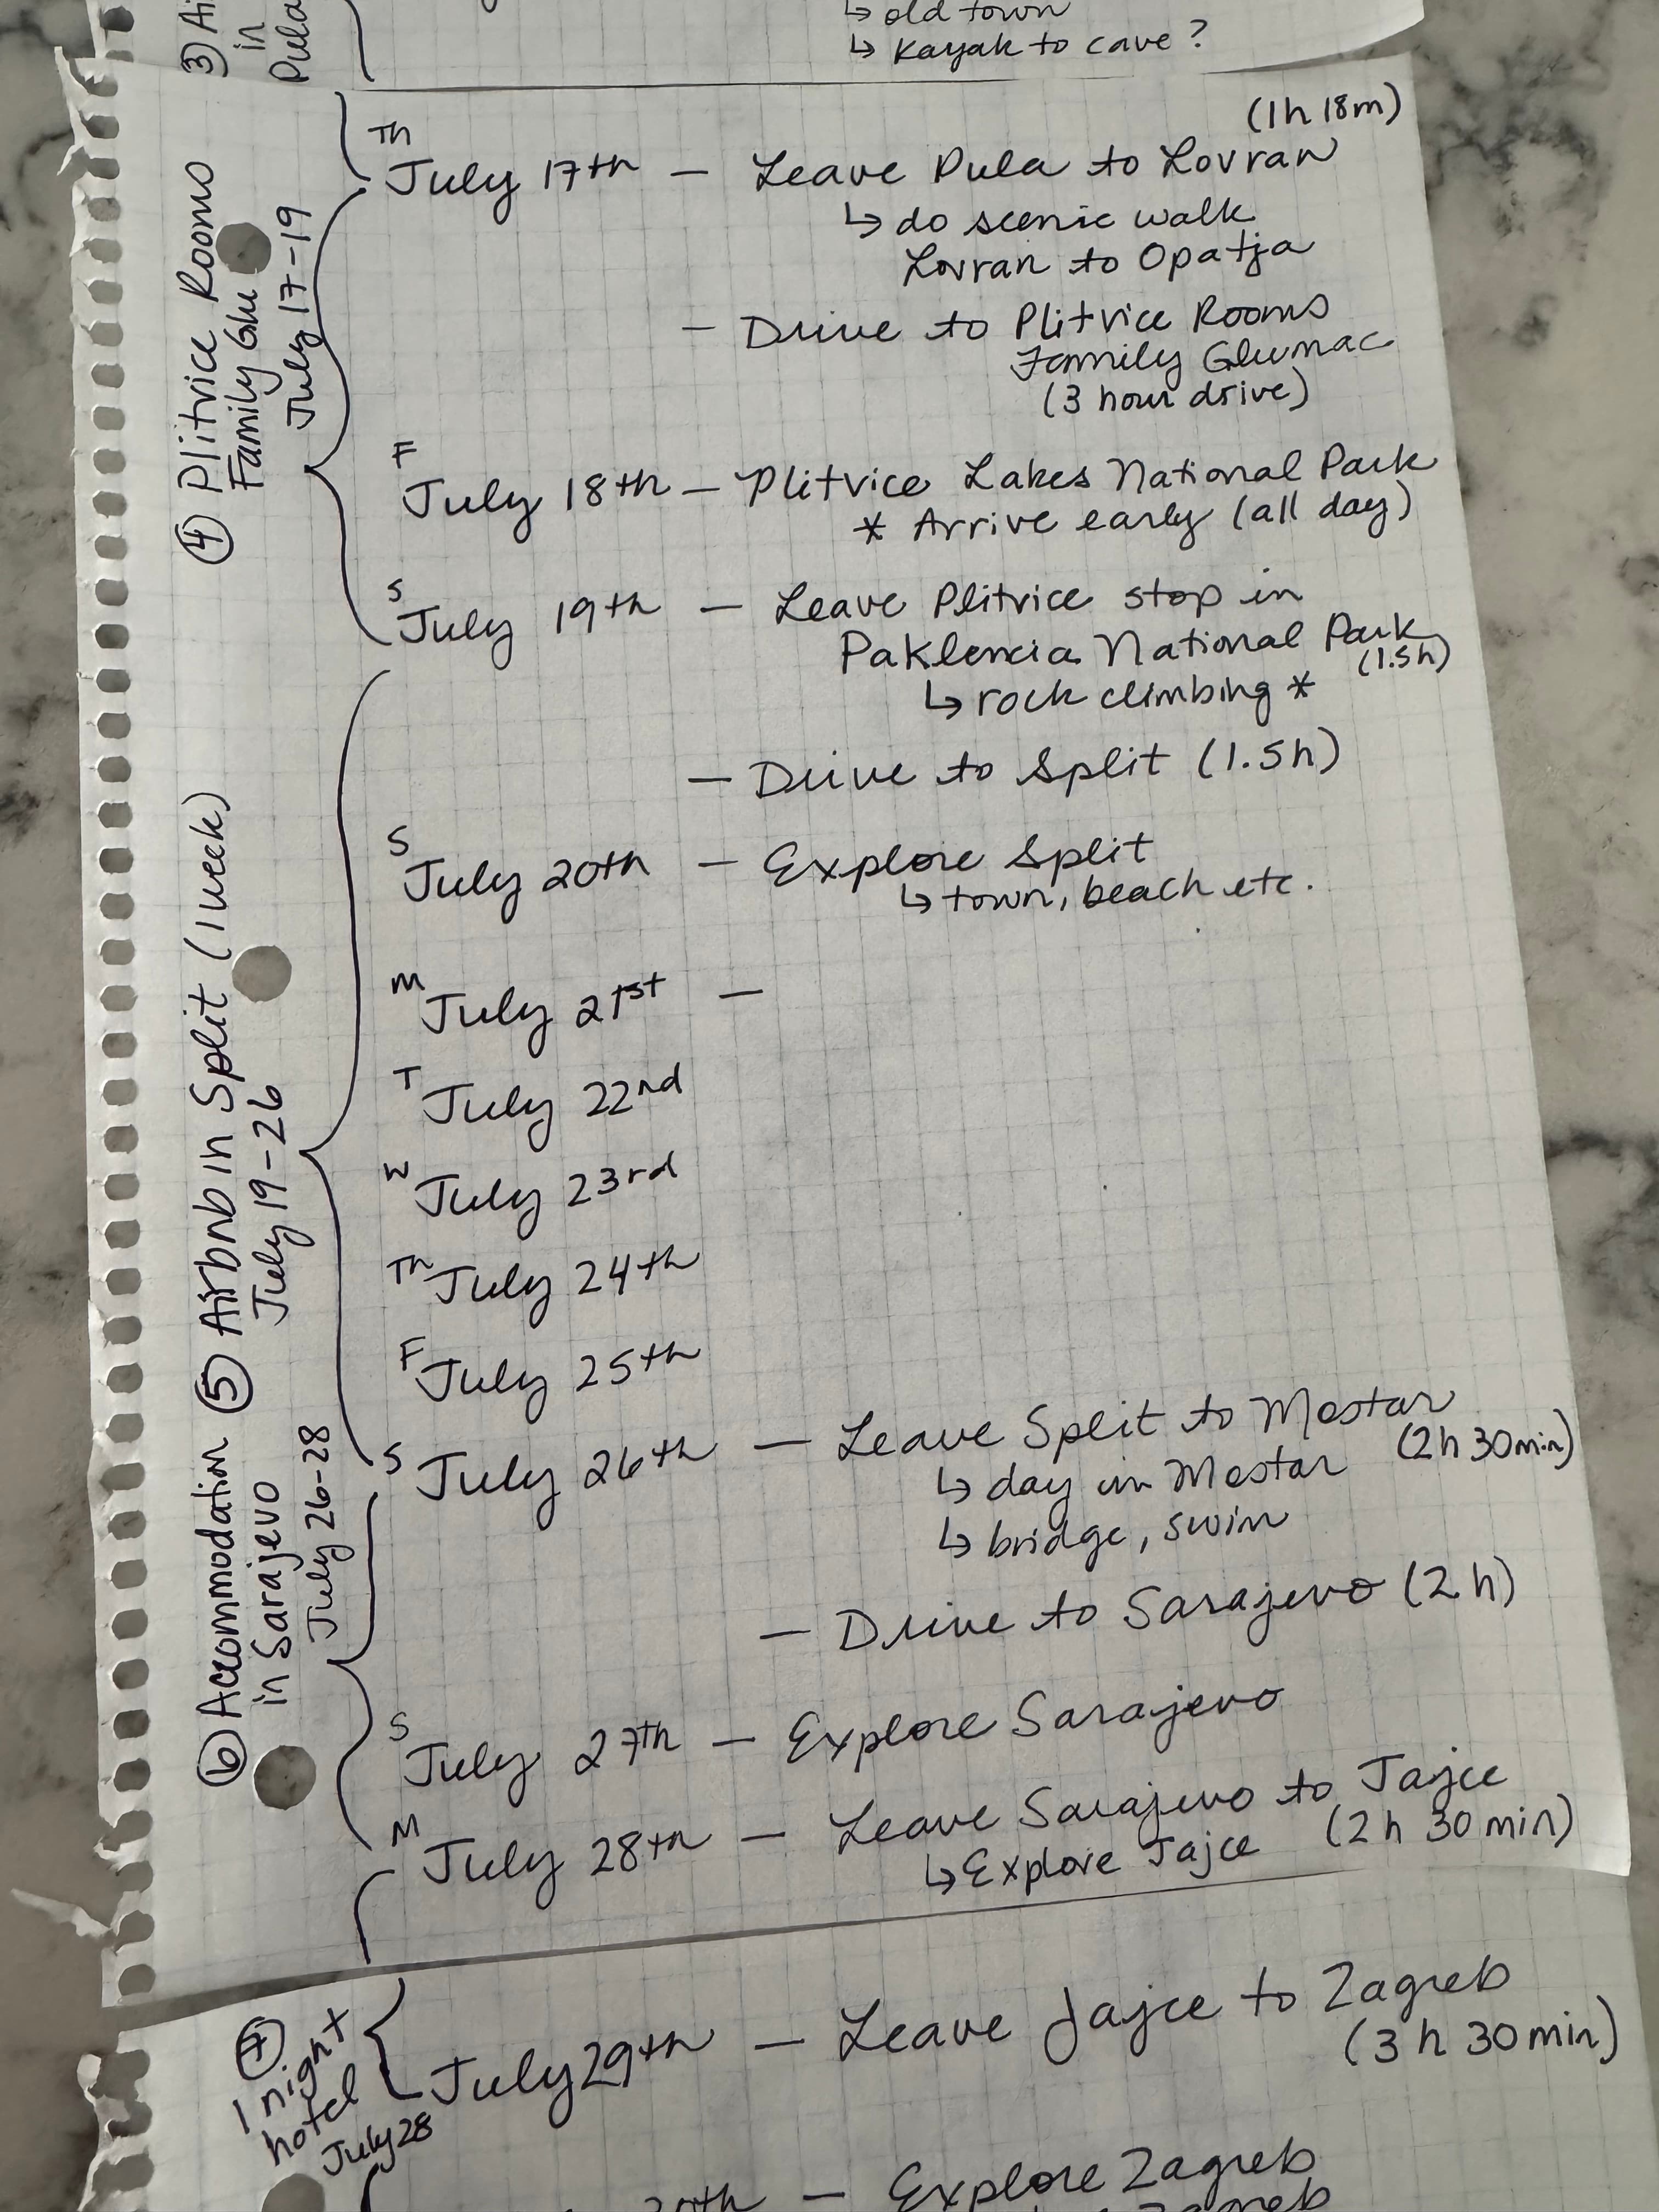 ③ Ai
in
Pula
↳ old town
↳ Kayak to cave?
④ Plitvice Rooms
Family Glu
July 17-19
Th
July 17th — Leave Pula to Lovran (1h 18m)
↳ do scenic walk
Lovran to Opatja
— Drive to Plitvice Rooms
Family Glumac
(3 hour drive)
F
July 18th — Plitvice Lakes National Park
* Arrive early (all day)
S
July 19th — Leave Plitvice stop in
Paklencia National Park
(1.5h)
↳ rock climbing *
— Drive to Split (1.5h)
⑤ Airbnb in Split (1 week)
July 19-26
S
July 20th — Explore Split
↳ town, beach etc.
M
July 21st —
T
July 22nd
W
July 23rd
Th
July 24th
F
July 25th
S
July 26th — Leave Split to Mostar
(2h 30min)
↳ day in Mostar
↳ bridge, swim
— Drive to Sarajevo (2h)
⑥ Accommodation
in Sarajevo
July 26-28
S
July 27th — Explore Sarajevo
M
July 28th — Leave Sarajevo to Jajce
(2h 30min)
↳ Explore Jajce
⑦
1 night
hotel
July 28
July 29th — Leave Jajce to Zagreb
(3h 30min)
— Explore Zagreb